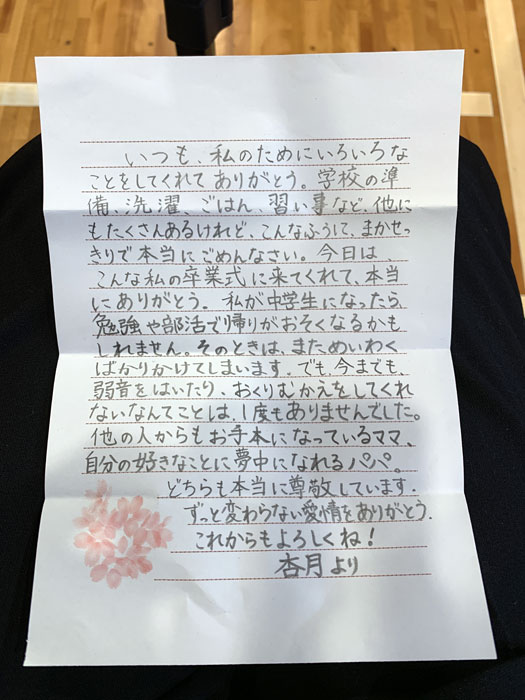 いつも、私のためにいろいろな
ことをしてくれてありがとう。学校の準
備、洗濯、ごはん、習い事など、他に
もたくさんあるけれど、こんなふうに、まかせっ
きりで本当にごめんなさい。今日は、
こんな私の卒業式に来てくれて、本当
にありがとう。私が中学生になったら、
勉強や部活で帰りがおそくなるかも
しれません。そのときは、まためいわく
ばかりかけてしまいます。でも今までも、
弱音をはいたり、おくりむかえをしてくれ
ないなんてことは、1度もありませんでした。
他の人からもお手本になっているママ、
自分の好きなことに夢中になれるパパ。
どちらも本当に尊敬しています。
ずっと変わらない愛情をありがとう。
これからもよろしくね!
杏月より